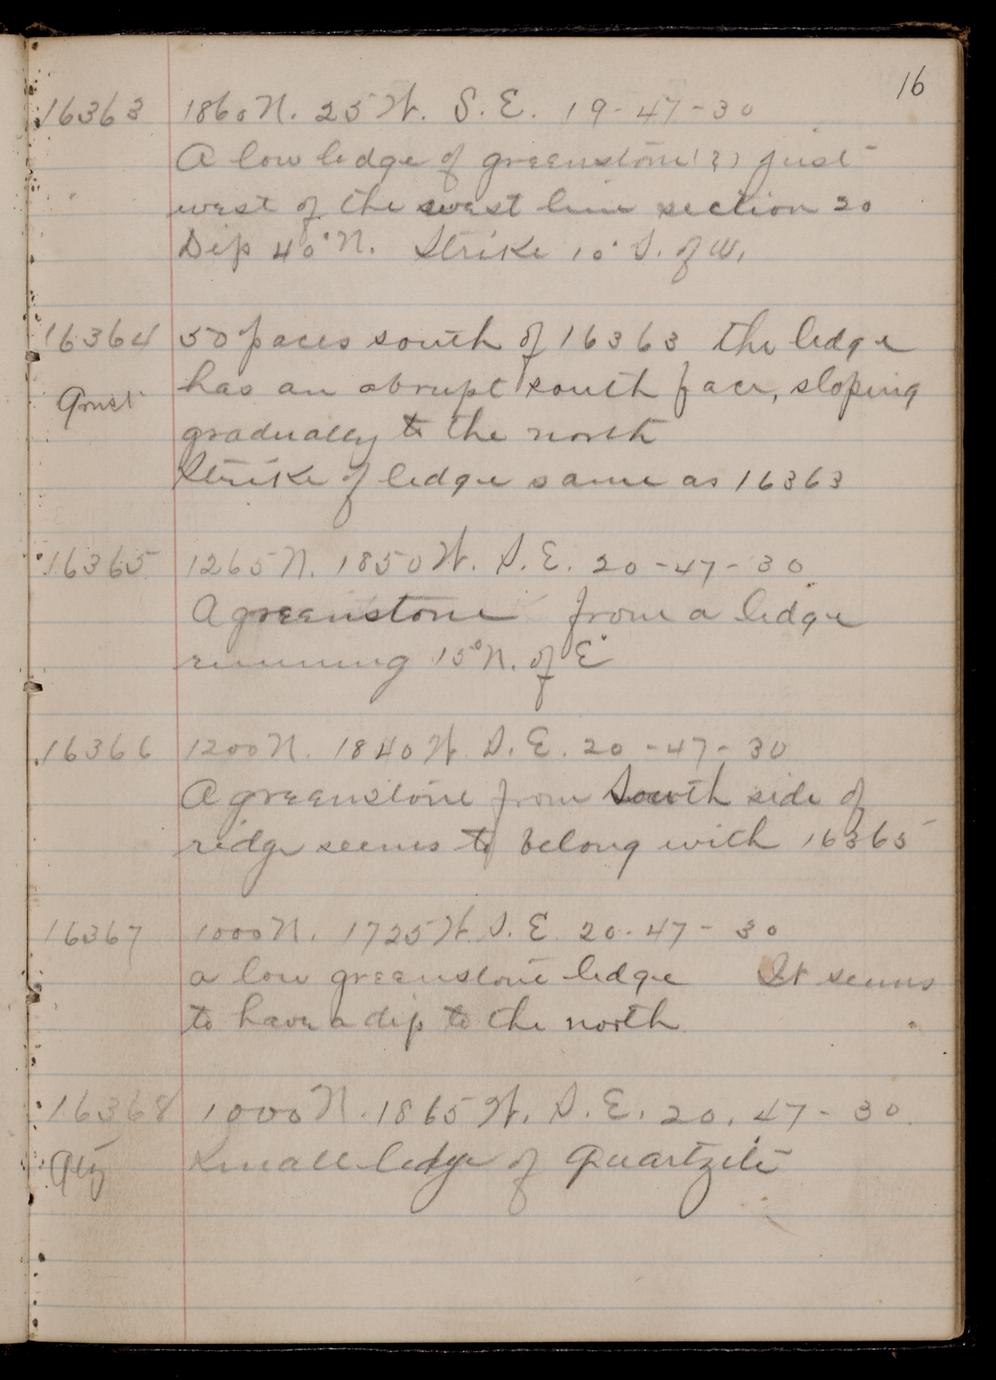 16
16363 1860 N. 25 W. S. E. 19-47-30
A low ledge of greenstone (?) just
west of the west line section 20
Dip 40° N. Strike 10° S. of W.
16364 50 paces south of 16363 the ledge
has an abrupt south face, sloping
gradually to the north
Strike of ledge same as 16363
16365 1265 N. 1850 W. S. E. 20-47-30
A greenstone from a ledge
running 15° N. of E
16366 1200 N. 1840 W. S. E. 20-47-30
A greenstone from South side of
ridge seems to belong with 16365
16367 1000 N. 1725 W. S. E. 20-47-30
a low greenstone ledge It seems
to have a dip to the north
16368 1000 N. 1865 W. S. E. 20. 47-30.
Qtz Small ledge of Quartzite